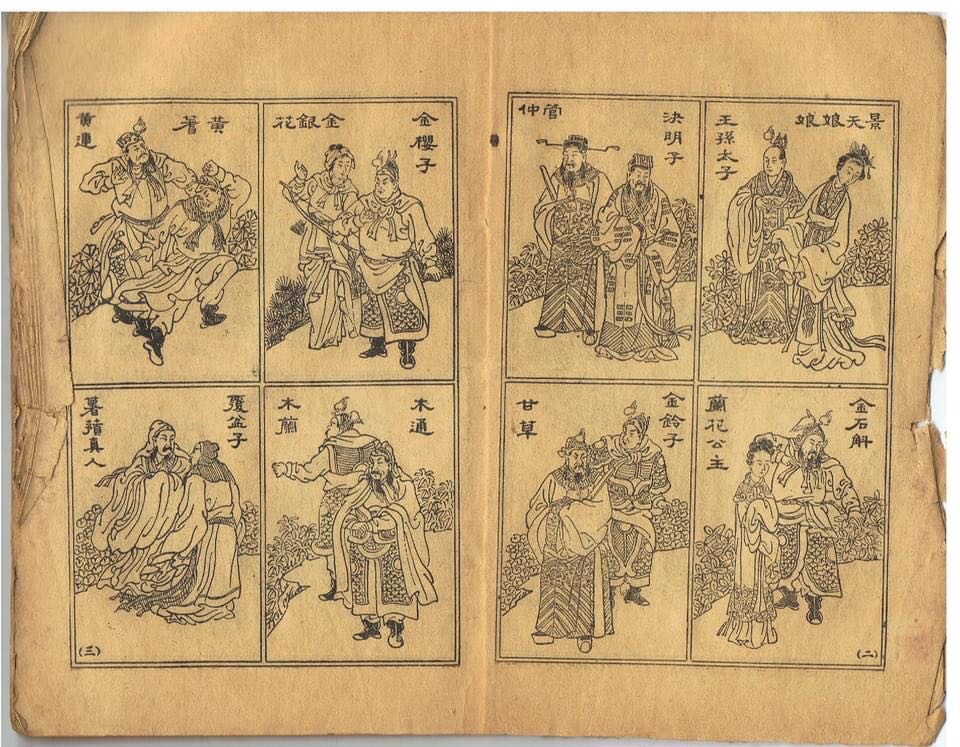 景天娘娘
王孫太子
決明子
管仲
金石斛
蘭花公主
金鈴子
甘草
(二)
金櫻子
金銀花
黃蓍
黃連
木通
木蘭
覆盆子
薯蕷真人
(三)